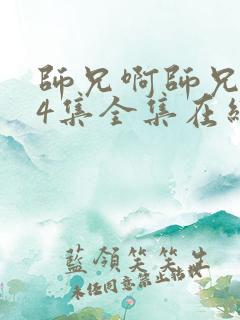 師兄啊師兄
4集全集在線
藍領笑笑生
未经同意禁止转载